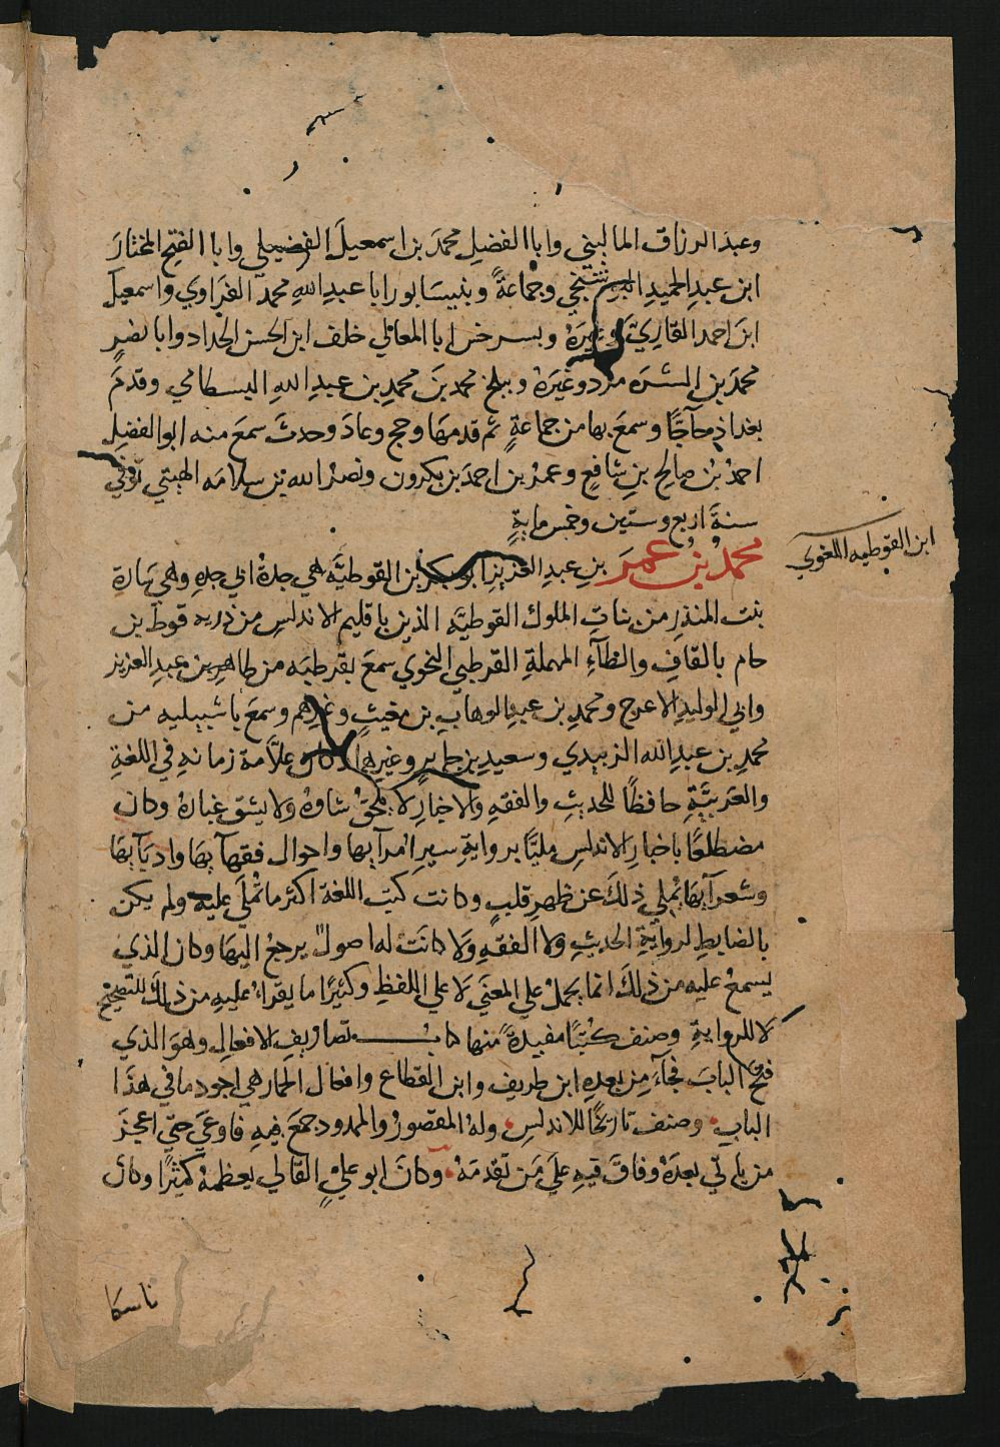 وعبد الرزاق الماليني وابا الفضل محمد بن اسمعيل الفضيلي وابا الفتح المختار
ابن عبد الحميد البوشنجي وجماعة وبنيسابور ابا عبد الله محمد الفراوي واسمعيل
ابن احمد القاري وغيره وبسرخس ابا المعالي خلف ابن الحسن الحداد وابا نصر
محمد بن وغيره وببلخ محمد بن محمد بن عبد الله البسطامي وقدم
بغداذ حآجا وسمع بها من جماعة ثم قدمها وحج وعاد وحدث سمع منه ابو الفضل
احمد بن صالح بن شافع وعمر بن احمد بن بكرون ونصر الله بن سلامه الهيتي توفي
سنة اربع وستين وخمس ماية
ابن القوطيه اللغوي
محمد بن عمر بن عبد العزيز ابو بكر بن القوطيَّه هي جدة ابي جده وهي سارة
بنت المنذر من بنات الملوك القوطيَّه الذين باقليم الاندلس من ذريه قوط بن
حام بالقاف والطآء المهملة القرطبي النحوي سمع بقرطبه من طاهر بن عبد العزيز
وابي الوليد الاعرج ومحمد بن عبد الوهاب بن مغيث وغيرهم وسمع باشبيليه من
محمد بن عبد الله الزبيدي وسعيد بن جابر وغيرهما وكان علاَّمة زمانه في اللغة
والعربيَّة حافظًا للحديث والفقه والاخبار لا يلحق شاوه ولا يشق غباره وكان
مضطلعًا باخبار الاندلس مليًّا برواية سير امرآيها واحوال فقهآيها وادبآيها
وشعرآيها يملي ذلك عن ظهر قلب وكانت كتب اللغة اكثر ما تملى عليه ولم يكن
بالضابط لرواية الحديث ولا الفقه ولا كانت له اصول يرجع اليها وكان الذي
يسمع عليه من ذلك انما يحمل على المعنى لا على اللفظ وكثيرًا ما يقرا عليه من ذلك للتصحيح
لا للرواية وصنف كتبًا مفيدة منها كتاب تصاريف الافعال وهو الذي
فتح الباب فجآء من بعده ابن طريف وابن القطاع وافعال الحمار هي اجود ما في هذا
الباب وصنف تاريخًا للاندلس وله المقصور والممدود جمع فيه فاوعى حتى اعجز
من ياتي بعده وفاق فيه على من تقدمه وكان ابو علي القالي يعظمه كثيرًا وكان
ناسكا